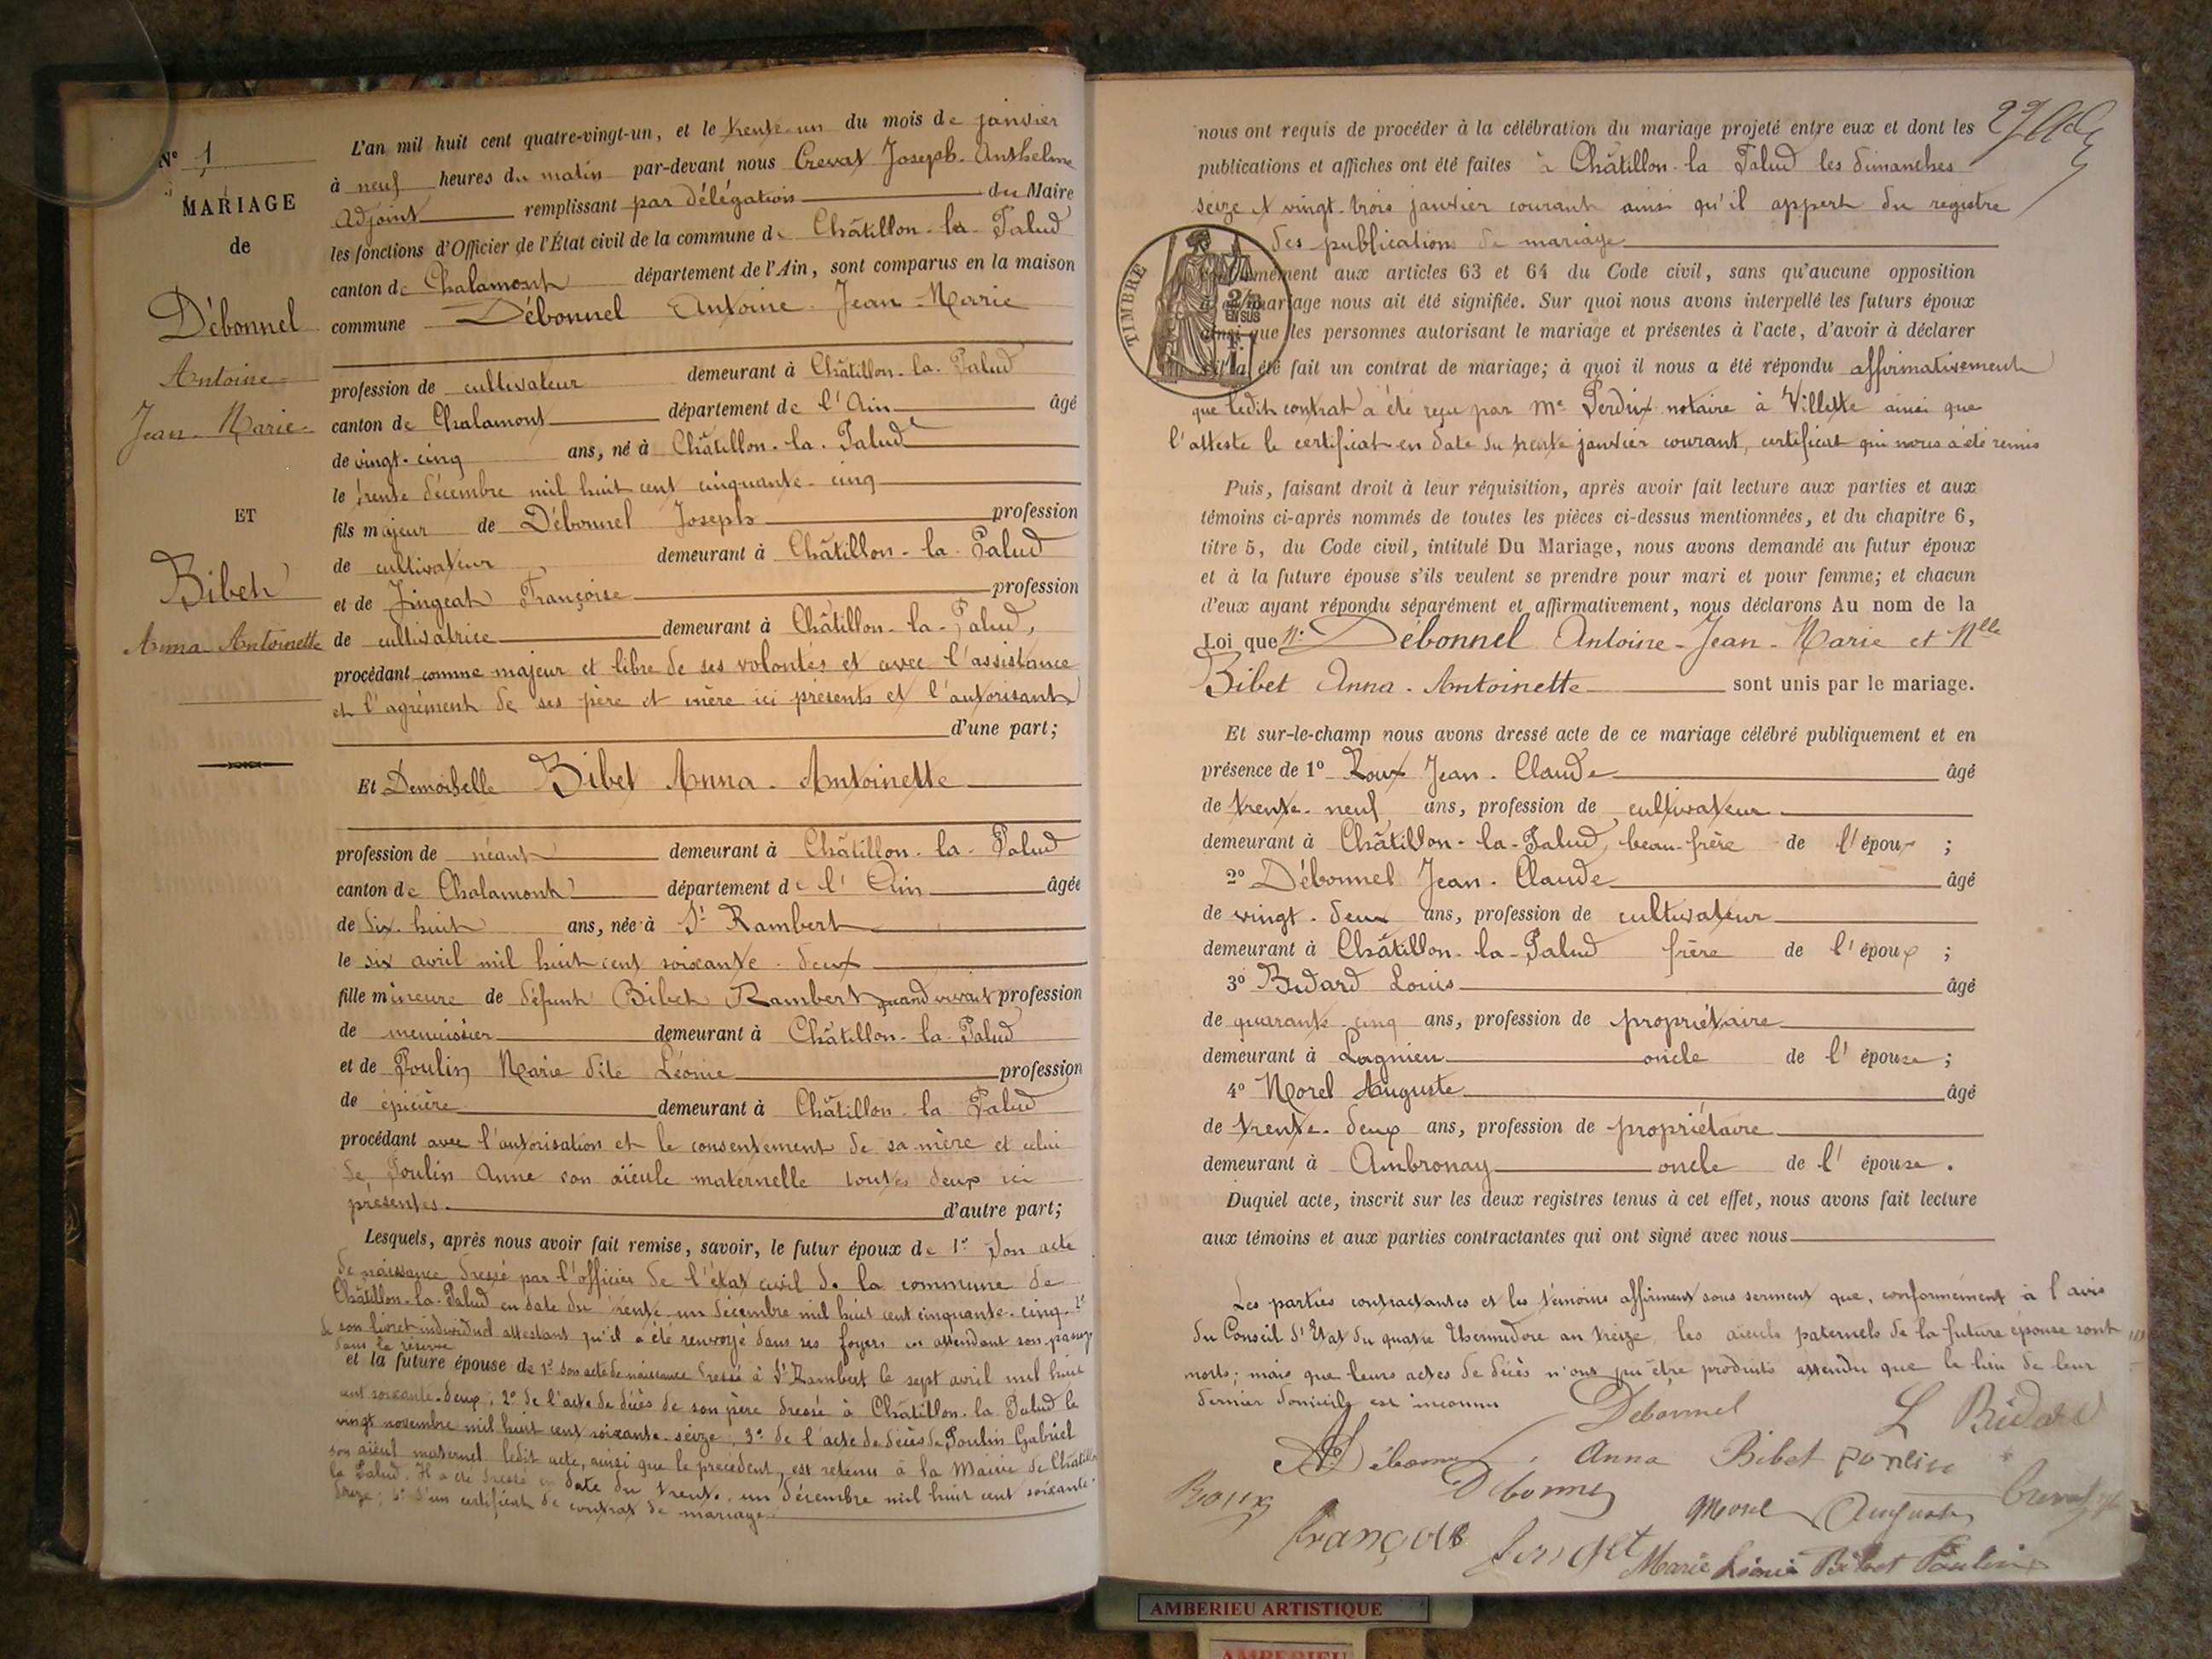 N° 1
MARIAGE
de
Débonnel
Antoine
Jean-Marie
ET
Bibet
Anna Antoinette
L'an mil huit cent quatre-vingt-un, et le trente-un du mois de janvier
à neuf heures du matin par-devant nous Crevat Joseph-Anthelme
Adjoint remplissant par délégation du Maire
les fonctions d'Officier de l'État civil de la commune de Châtillon-la-Palud
canton de Chalamont département de l'Ain, sont comparus en la maison
commune Débonnel Antoine-Jean-Marie
profession de cultivateur demeurant à Châtillon-la-Palud
canton de Chalamont département de l'Ain âgé
de vingt-cinq ans, né à Châtillon-la-Palud
le trente décembre mil huit cent cinquante-cinq
fils majeur de Débonnel Joseph profession
de cultivateur demeurant à Châtillon-la-Palud
et de Françoise profession
de cultivatrice demeurant à Châtillon-la-Palud,
procédant comme majeur et libre de ses volontés et avec l'assistance
et l'agrément de ses père et mère ici présents et l'autorisant
d'une part;
Et Demoiselle Bibet Anna-Antoinette
profession de néant demeurant à Châtillon-la-Palud
canton de Chalamont département de l'Ain âgée
de dix-huit ans, née à St Rambert
le six avril mil huit cent soixante-deux
fille mineure de défunt Bibet Rambert quand vivait profession
de menuisier demeurant à Châtillon-la-Palud
et de Poulin Marie dite Léonie profession
de épicière demeurant à Châtillon-la Palud
procédant avec l'autorisation et le consentement de sa mère et celui
de Poulin Anne son aïeule maternelle toutes deux ici
présentes d'autre part;
Lesquels, après nous avoir fait remise, savoir, le futur époux de 1° Son acte
de naissance dressé par l'officier de l'état civil de la commune de
Châtillon-la-Palud en date du trente-un décembre mil huit cent cinquante-cinq 2°
de son livret individuel attestant qu'il a été renvoyé dans ses foyers en attendant son passage
dans la réserve
et la future épouse de 1° son acte de naissance dressé à St Rambert le sept avril mil huit
cent soixante-deux; 2° de l'acte de décès de son père dressé à Châtillon-la Palud le
vingt novembre mil huit cent soixante-seize; 3° de l'acte de décès de Poulin Gabriel
son aïeul maternel ledit acte, ainsi que le précédent, est retenu à la Mairie de Châtillon
la Palud. Il a été dressé en date du trente-un décembre mil huit cent soixante-
treize; 4° d'un certificat de contrat de mariage
nous ont requis de procéder à la célébration du mariage projeté entre eux et dont les
publications et affiches ont été faites à Châtillon-la Palud les dimanches
seize et vingt-trois janvier courant ainsi qu'il appert du registre
des publications de mariage
TIMBRE
2/10 EN SUS
conformément aux articles 63 et 64 du Code civil, sans qu'aucune opposition
à ce mariage nous ait été signifiée. Sur quoi nous avons interpellé les futurs époux
ainsi que les personnes autorisant le mariage et présentes à l'acte, d'avoir à déclarer
s'il a été fait un contrat de mariage; à quoi il nous a été répondu affirmativement
que ledit contrat a été reçu par Me Perdrix notaire à Villette ainsi que
l'atteste le certificat en date du trente janvier courant, certificat qui nous a été remis
Puis, faisant droit à leur réquisition, après avoir fait lecture aux parties et aux
témoins ci-après nommés de toutes les pièces ci-dessus mentionnées, et du chapitre 6,
titre 5, du Code civil, intitulé Du Mariage, nous avons demandé au futur époux
et à la future épouse s'ils veulent se prendre pour mari et pour femme; et chacun
d'eux ayant répondu séparément et affirmativement, nous déclarons Au nom de la
Loi que Mr Débonnel Antoine-Jean-Marie et Mlle
Bibet Anna-Antoinette sont unis par le mariage.
Et sur-le-champ nous avons dressé acte de ce mariage célébré publiquement et en
présence de 1° Roux Jean-Claude âgé
de trente-neuf ans, profession de cultivateur
demeurant à Châtillon-la-Palud, beau-frère de l'époux ;
2° Débonnel Jean-Claude âgé
de vingt-deux ans, profession de cultivateur
demeurant à Châtillon-la-Palud frère de l'époux ;
3° Bidard Louis âgé
de quarante-cinq ans, profession de propriétaire
demeurant à Lagnieu oncle de l'épouse ;
4° Morel Auguste âgé
de trente-deux ans, profession de propriétaire
demeurant à Ambronay oncle de l'épouse .
Duquel acte, inscrit sur les deux registres tenus à cet effet, nous avons fait lecture
aux témoins et aux parties contractantes qui ont signé avec nous
Les parties contractantes et les témoins affirment sous serment que, conformément à l'avis
du Conseil d'État du quatre thermidore an treize, les aïeuls paternels de la future épouse sont
morts; mais que leurs actes de décès n'ont pu être produits attendu que le lieu de leur
dernier domicile est inconnu
Debonnel L Bidard
Anna Bibet Poulin
Roux Debonnel Morel Auguste Crevat
Marie Léonie Bibet Poulin
AMBERIEU ARTISTIQUE
AMBERIEU